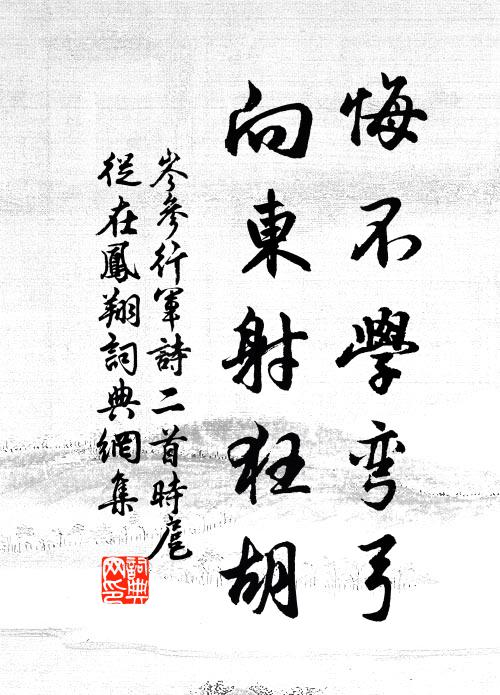 悔不學彎弓
向東射狂胡
岑參行軍詩二首時扈
從在鳳翔詞典網集
詞典
网印